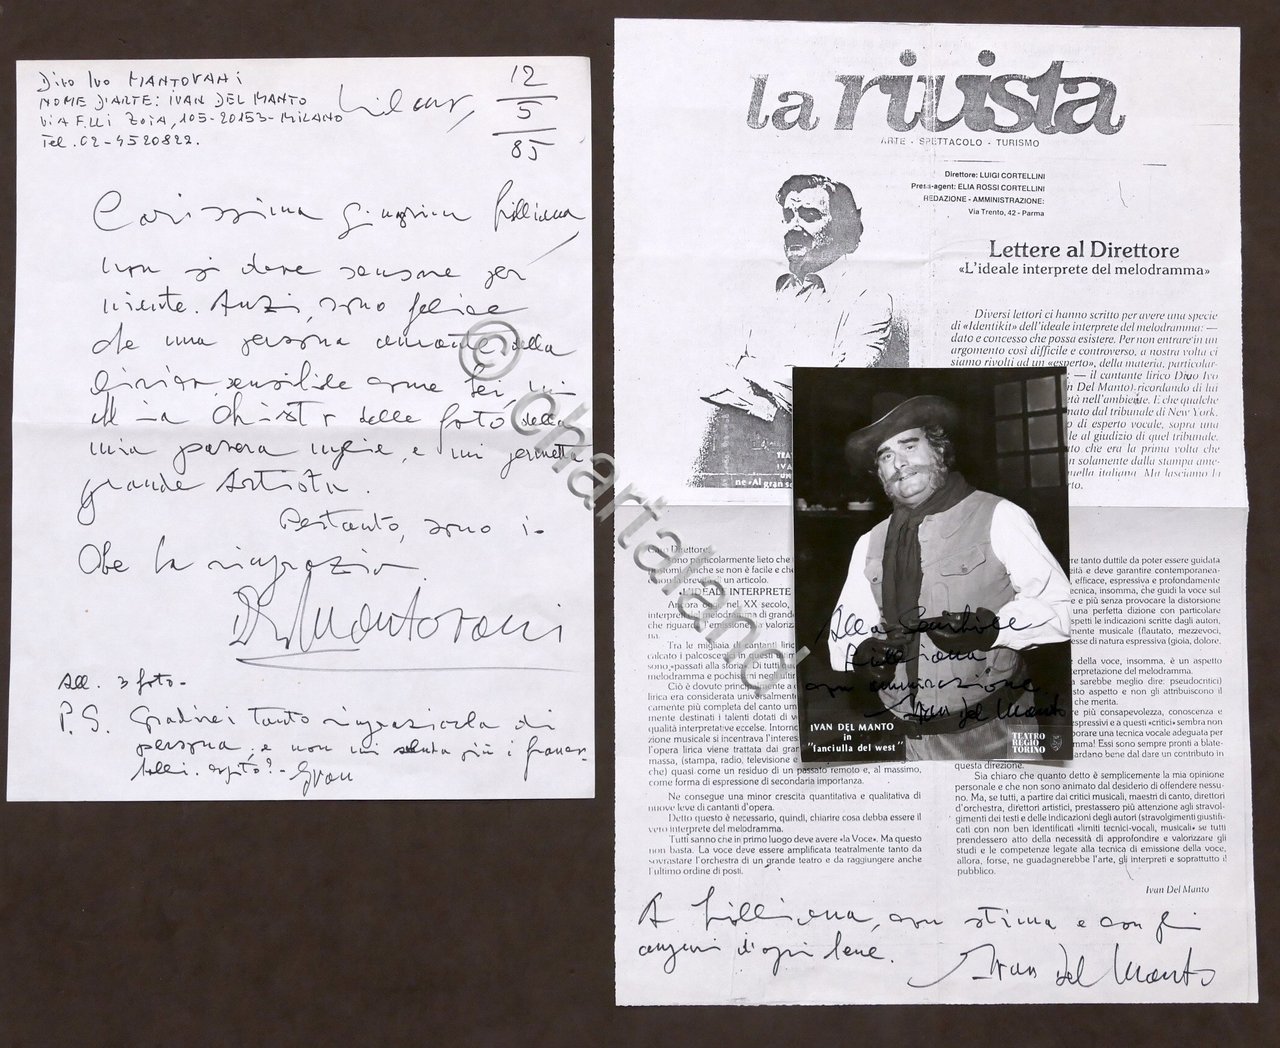 Divo Ivo MANTOVANI
NOME D'ARTE: IVAN DEL MANTO
VIA F.lli ZOIA, 105-20153-MILANO
Tel. 02-4520822.
12
5
85
Carissima Signorina Lilliana,
non si deve scusare per
niente. Anzi, sono felice
che una persona amante della
lirica, sensibile come Lei, mi
delle foto della
mia passera moglie, e mi permetta
grande Artista.
Pertanto, sono io
che la ringrazia.
D. I. Mantovani
All. 3 foto-
P.S. Gradirei tanto ringraziarla di
persona, e non mi
Ivan
la rivista
ARTE - SPETTACOLO - TURISMO
Direttore: LUIGI CORTELLINI
Press-agent: ELIA ROSSI CORTELLINI
REDAZIONE - AMMINISTRAZIONE:
Via Trento, 42 - Parma
Lettere al Direttore
«L'ideale interprete del melodramma»
Diversi lettori ci hanno scritto per avere una specie
di «Identikit» dell'ideale interprete del melodramma: —
dato e concesso che possa esistere. Per non entrare in un
argomento così difficile e controverso, a nostra volta ci
siamo rivolti ad un «esperto», della materia, particolar-
— il cantante lirico Divo Ivo
Del Manto) ricordando di lui
nell'ambiente. E che qualche
nato dal tribunale di New York.
di esperto vocale, sopra una
le al giudizio di quel tribunale.
che era la prima volta che
solamente dalla stampa ame-
quella italiana. Ma lasciamo la
ne «Al gran
Direttore,
sono particolarmente lieto che
Anche se non è facile e
un articolo.
«L'IDEALE INTERPRETE
Ancora nel XX secolo,
Tra le migliaia di cantanti
calcato i palcoscenici
sono «passati alla storia». Di tutti
melodramma e pochissi
Ciò è dovuto princi
lirica era considerata universalmen
camente più completa del canto um
mente destinati i talenti dotati di
qualità interpretative eccelse. Intorno
zione musicale si incentrava l'interes
l'opera lirica viene trattata dai gran
massa, (stampa, radio, televisione e
che) quasi come un residuo di un passato remoto e, al massimo,
come forma di espressione di secondaria importanza.
Ne consegue una minor crescita quantitativa e qualitativa di
nuove leve di cantanti d'opera.
Detto questo è necessario, quindi, chiarire cosa debba essere il
vero interprete del melodramma.
Tutti sanno che in primo luogo deve avere «la Voce». Ma questo
non basta. La voce deve essere amplificata teatralmente tanto da
sovrastare l'orchestra di un grande teatro e da raggiungere anche
l'ultimo ordine di posti.
ere tanto duttile da poter essere guidata
cità e deve garantire contemporanea-
efficace, espressiva e profondamente
ecnica, insomma, che guidi la voce sul
e più senza provocare la distorsione
una perfetta dizione con particolare
spetti le indicazioni scritte dagli autori,
mente musicale (flautato, mezzevoci,
esse di natura espressiva (gioia, dolore,
della voce, insomma, è un aspetto
terpretazione del melodramma.
sarebbe meglio dire: pseudocritici)
sto aspetto e non gli attribuiscono il
che merita.
e più consapevolezza, conoscenza e
espressivi e a questi «critici» sembra non
orare una tecnica vocale adeguata per
mma! Essi sono sempre pronti a blate-
ardano bene dal dare un contributo in
questa direzione.
Sia chiaro che quanto detto è semplicemente la mia opinione
personale e che non sono animato dal desiderio di offendere nessu-
no. Ma, se tutti, a partire dai critici musicali, maestri di canto, direttori
d'orchestra, direttori artistici, prestassero più attenzione agli stravol-
gimenti dei testi e delle indicazioni degli autori (stravolgimenti giustifi-
cati con non ben identificati «limiti tecnici-vocali, musicali» se tutti
prendessero atto della necessità di approfondire e valorizzare gli
studi e le competenze legate alla tecnica di emissione della voce,
allora, forse, ne guadagnerebbe l'arte, gli interpreti e soprattutto il
pubblico.
Ivan Del Manto
Alla Gentile
Lilliana,
con ammirazione
Ivan Del Manto
IVAN DEL MANTO
in
"fanciulla del west"
TEATRO
REGIO
TORINO
A Lilliana, con stima e con gli
auguri d'ogni bene.
Ivan Del Manto
© chartaland